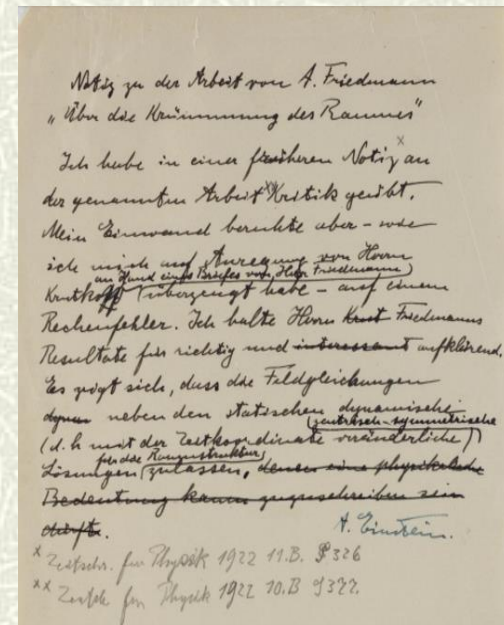 Notiz zu der Arbeit von A. Friedmann
"Über die Krümmung des Raumes"
Ich habe in einer früheren Notiz x an
der genannten Arbeit xx Kritik geübt.
Mein Einwand beruhte aber – wie
ich mich auf Anregung von Herrn
an Hand eines Briefes von Herr Friedmann)
Krutkoff (überzeugt habe – auf einem
Rechenfehler. Ich halte Herrn Friedmanns
Resultate für richtig und interessant aufklärend.
Es zeigt sich, dass die Feldgleichungen
neben den statischen dynamische
(zentrisch-symmetrische
(d. h mit der Zeitkoordinate veränderliche)
für die Raumstruktur)
Lösungen (zulassen, denen eine physikalische
Bedeutung kaum zuzuschreiben sein
dürfte.
A. Einstein.
x Zeitschr. für Physik 1922 11.B. S 326
xx Zeitsch für Physik 1922 10.B S377.